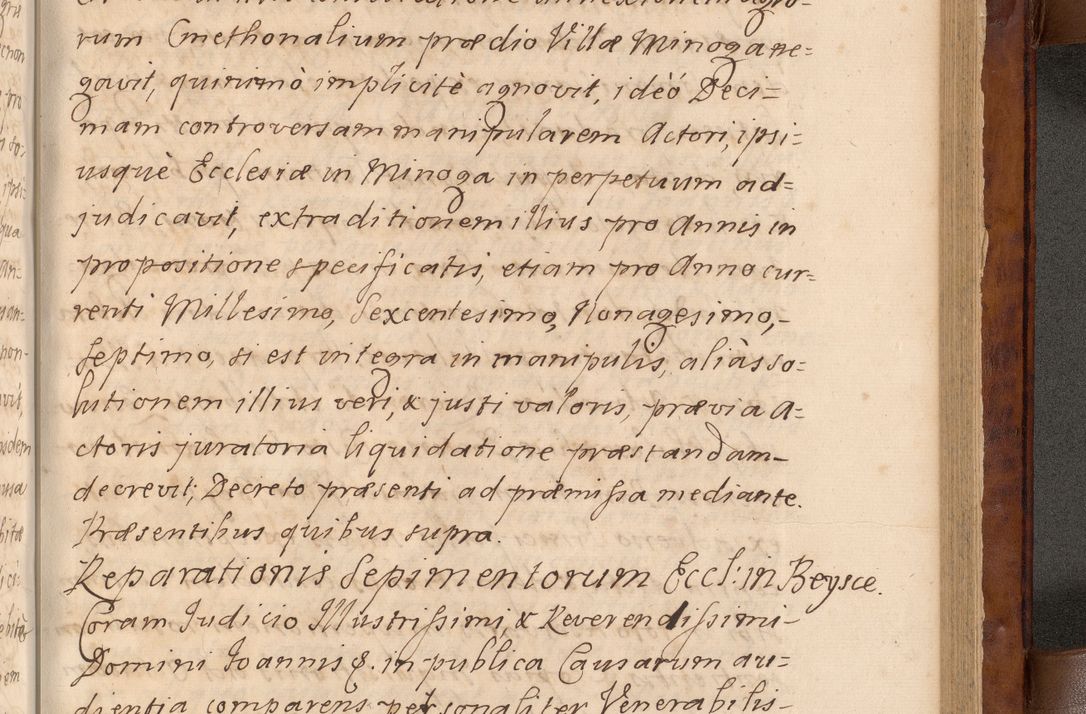 rum Cmethonalium prædio Villæ Minoga ne=
gavit, quinimò implicitè agnovit, idèó Deci=
mam controversam manipularem Actori, ipsi=
usquè Ecclesiæ in Minoga in perpetuum ad=
judicavit, extraditionem illius pro Annis in
propositione specificatis, etiam pro Anno cur=
renti Millesimo, Sexcentesimo, Nonagesimo,-
Septimo, si est integra in manipulis, aliàs so=
lutionem illius veri, & justi valoris, prævia A=
ctoris juratoria liquidatione præstandam-
decrevit; Decreto præsenti ad præmissa mediante.
Præsentibus quibus supra.
Reparationis Sepimentorum Eccl: in Beysce.
Coram Judicio Illustrissimi, & Reverendissimi-
Domini Joannis &. in publica Causarum au=
dientia comparens personaliter Venerabilis-